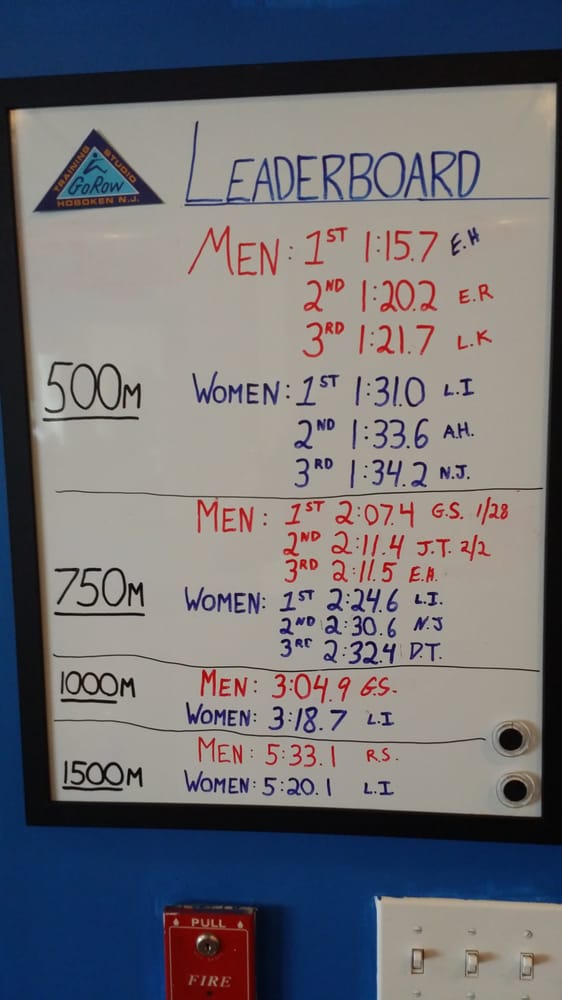 TRAINING STUDIO
GoRow
HOBOKEN N.J.
LEADERBOARD
500M
MEN: 1ST 1:15.7 E.H
2ND 1:20.2 E.R
3RD 1:21.7 L.K
WOMEN: 1ST 1:31.0 L.I
2ND 1:33.6 A.H.
3RD 1:34.2 N.J.
750M
MEN: 1ST 2:07.4 G.S. 1/28
2ND 2:11.4 J.T. 2/2
3RD 2:11.5 E.H.
WOMEN: 1ST 2:24.6 L.I.
2ND 2:30.6 N.J
3RD 2:32.4 D.T.
1000M
MEN: 3:04.9 G.S.
WOMEN: 3:18.7 L.I
1500M
MEN: 5:33.1 R.S.
WOMEN: 5:20.1 L.I
PULL
FIRE